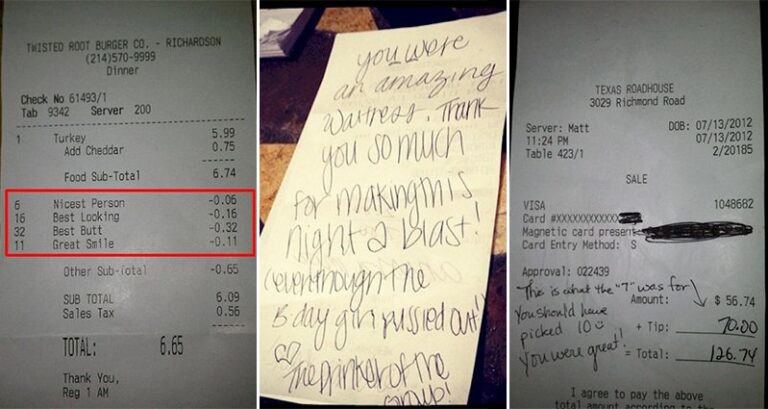 TWISTED ROOT BURGER CO. - RICHARDSON
(214)570-9999
Dinner
Check No 61493/1
Tab 9342 Server 200
1 Turkey 5.99
Add Cheddar 0.75
Food Sub-Total 6.74
6 Nicest Person -0.06
16 Best Looking -0.16
32 Best Butt -0.32
11 Great Smile -0.11
Other Sub-Total -0.65
SUB TOTAL 6.09
Sales Tax 0.56
TOTAL: 6.65
Thank You,
Reg 1 AM
you were
an amazing
waitress. Thank
you so much
for making this
night a blast!
(even though the
B-day girl pussied out!)
♡
The drinker of the
group!
TEXAS ROADHOUSE
3029 Richmond Road
Server: Matt DOB: 07/13/2012
11:24 PM 07/13/2012
Table 423/1 2/20185
SALE
VISA 1048682
Card #XXXXXXXXXXXX
Magnetic card present:
Card Entry Method: S
Approval: 022439
This is what the "7" was for
Amount: $ 56.74
You should have
picked 10 ☺
+ Tip: 70.00
You were great!!
= Total: 126.74
I agree to pay the above
total amount according to the